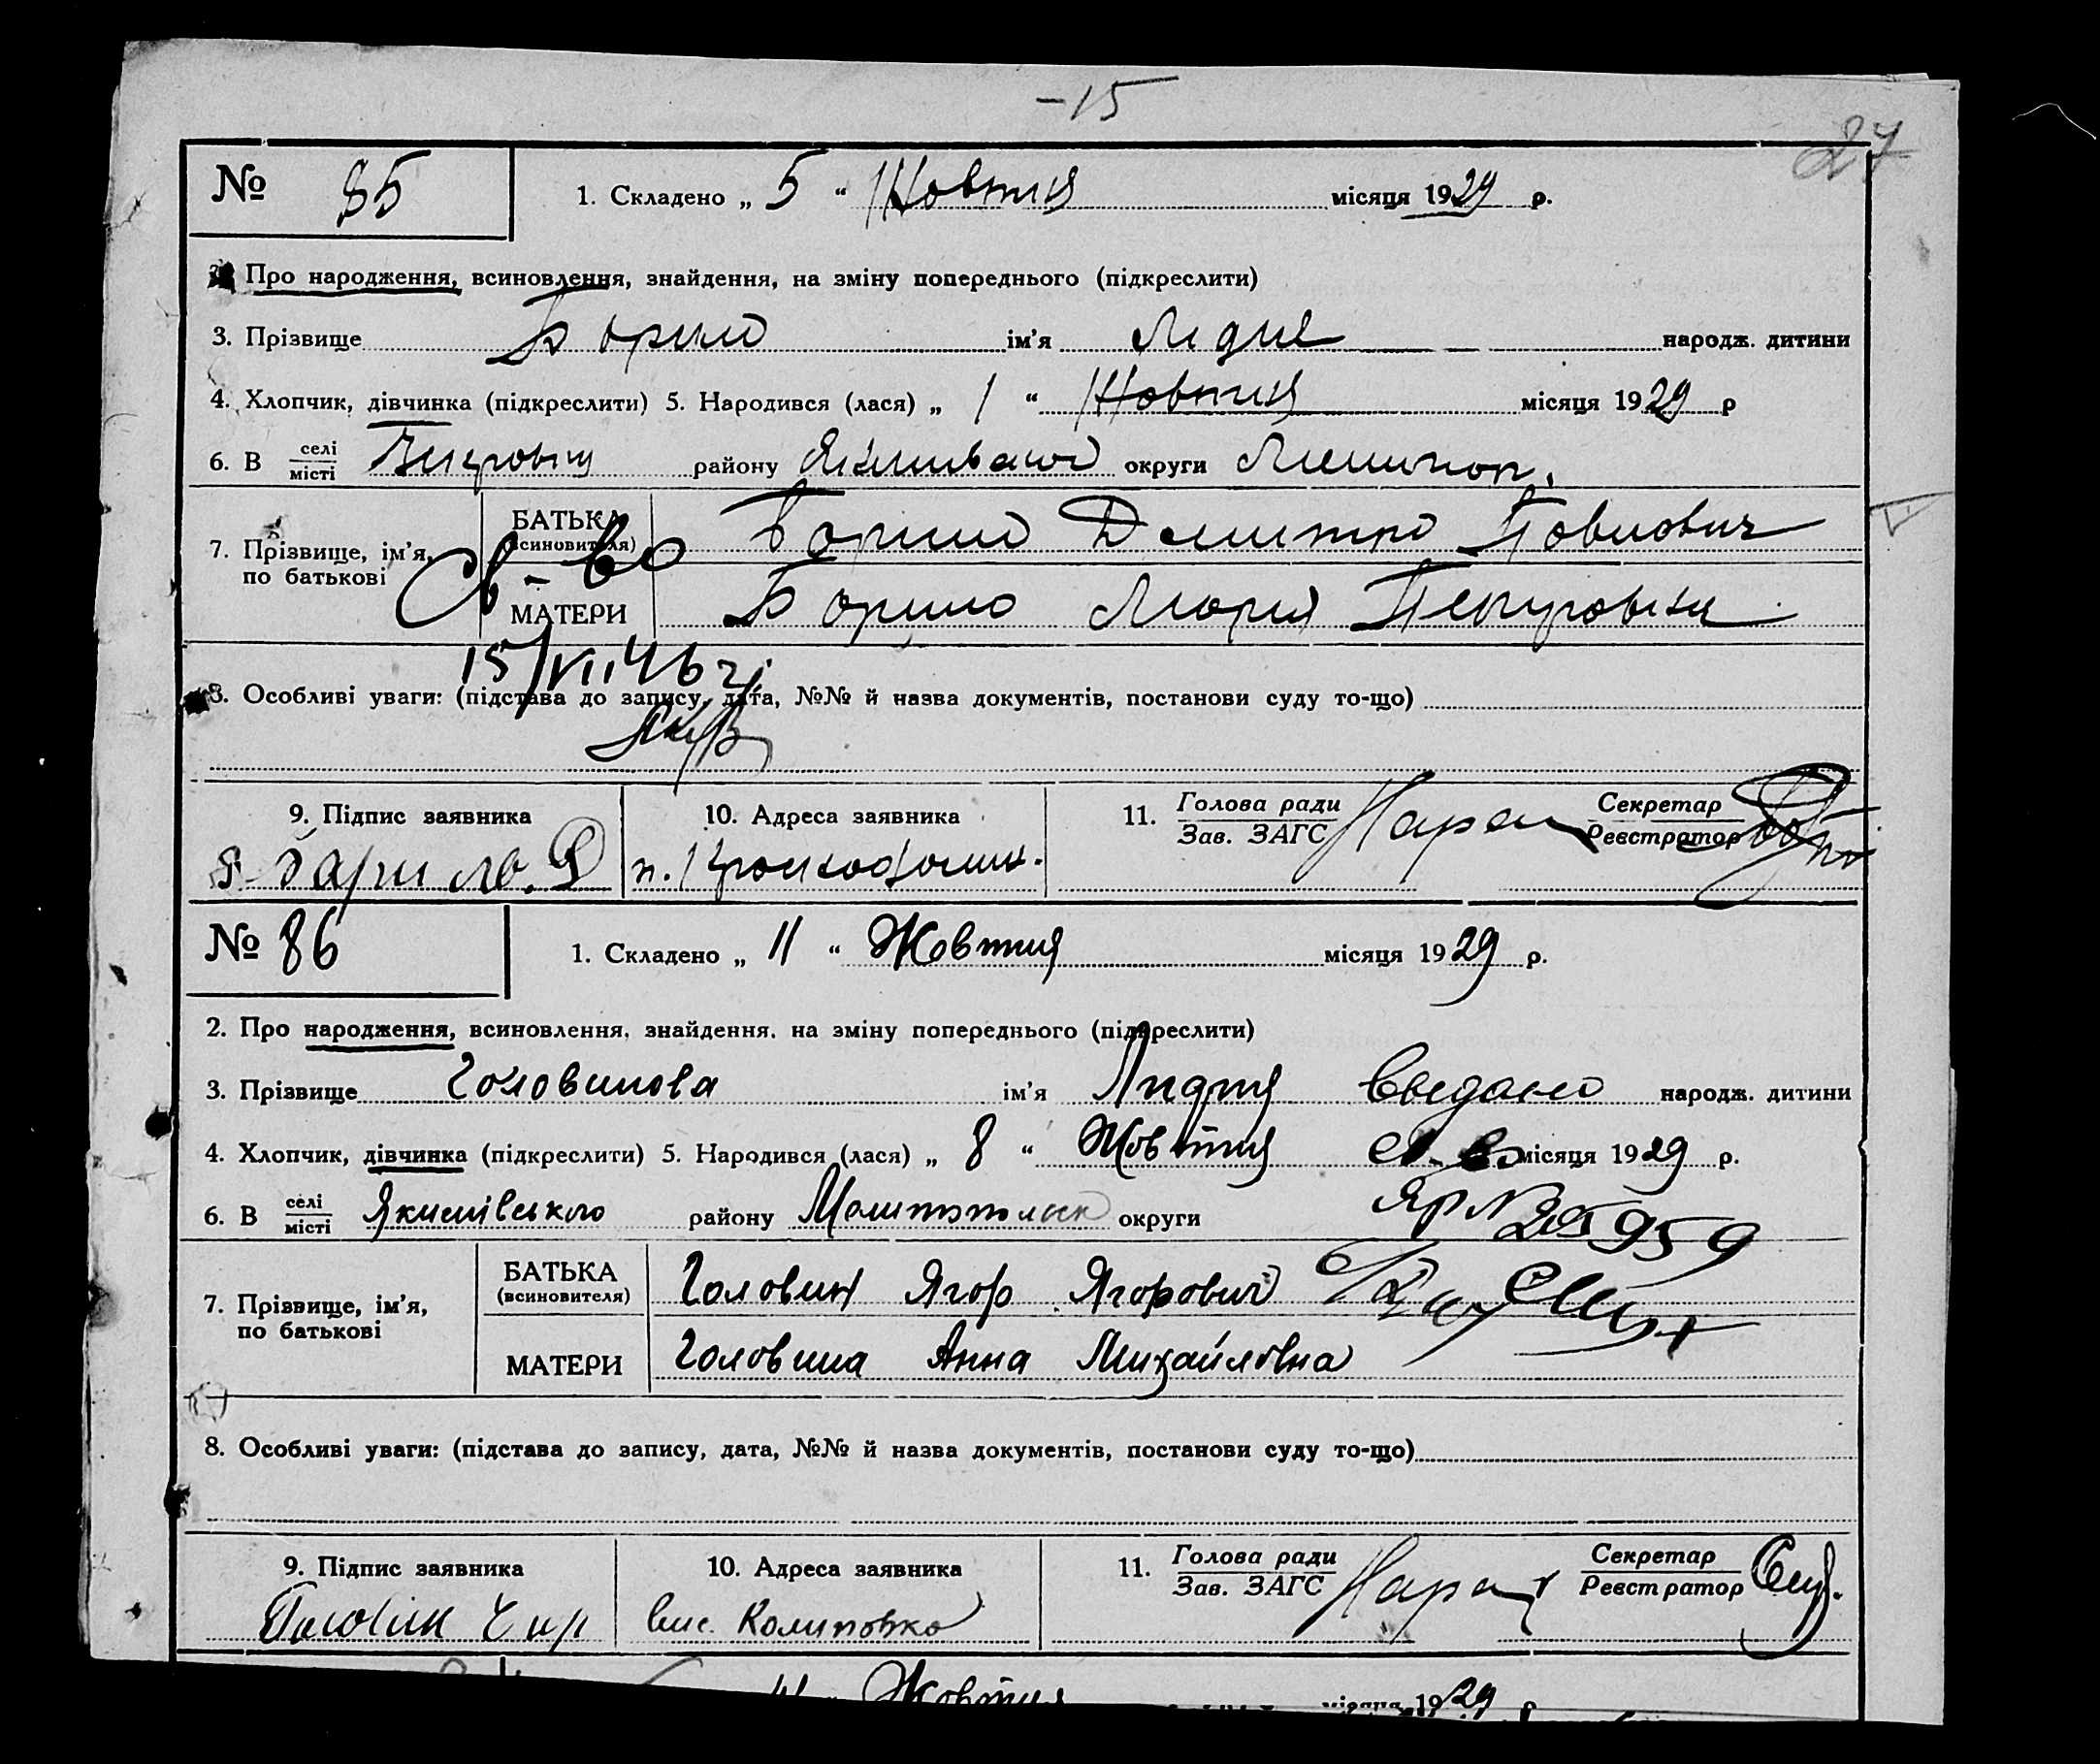 -15
27
№ 85
1. Складено „ 5 “ Жовтня місяця 1929 р.
Про народження, всиновлення, знайдення, на зміну попереднього (підкреслити)
3. Прізвище Борило ім'я Лідия народж. дитини
4. Хлопчик, дівчинка (підкреслити) 5. Народився (лася) „ 1 “ Жовтня місяця 1929 р
6. В селі місті району округи Мелитоп.
7. Прізвище, ім'я, по батькові
БАТЬКА (всиновителя) Борило Дмитро Повлович
МАТЕРИ Борило Мория Петровна
Св-во
15/VII 46 г.
8. Особливі уваги: (підстава до запису, дата, №№ й назва документів, постанови суду то-що)
9. Підпис заявника
10. Адреса заявника
11. Голова ради Зав. ЗАГС
Секретар Реєстратор
№ 86
1. Складено „ 11 “ Жовтня місяця 1929 р.
2. Про народження, всиновлення, знайдення, на зміну попереднього (підкреслити)
3. Прізвище Головинова ім'я Лидия Выдано народж. дитини
4. Хлопчик, дівчинка (підкреслити) 5. Народився (лася) „ 8 “ Жовтня св-во місяця 1929 р.
6. В селі місті Якимівського району Мелитопольск округи
ЯР №
7. Прізвище, ім'я, по батькові
БАТЬКА (всиновителя) Головин Ягор Ягорович
МАТЕРИ Головина Анна Михайловна
8. Особливі уваги: (підстава до запису, дата, №№ й назва документів, постанови суду то-що)
9. Підпис заявника
10. Адреса заявника
11. Голова ради Зав. ЗАГС
Секретар Реєстратор
Головин
Жовтня місяця 1929 р